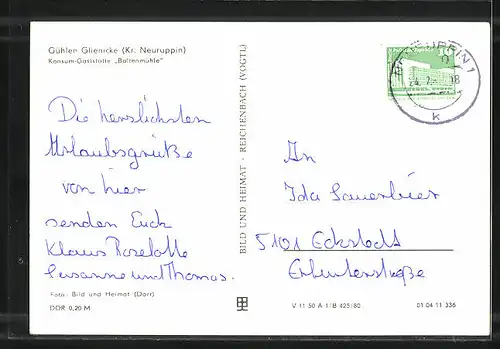 Gühlen Glienicke (Kr. Neuruppin)
Konsum-Gaststätte „Boltenmühle"
Die herzlichsten
Urlaubsgrüße
von hier
senden Euch
Klaus Roselotte
Susanne und Thomas.
Foto: Bild und Heimat (Darr)
DDR 0,20 M
BILD UND HEIMAT · REICHENBACH (VOGTL)
NEURUPPIN 1
k
An
Ida Sauerbier
5101 Eckstedt
Erfurterstraße
V 11 50 A 1/B 425/80
01 04 11 336